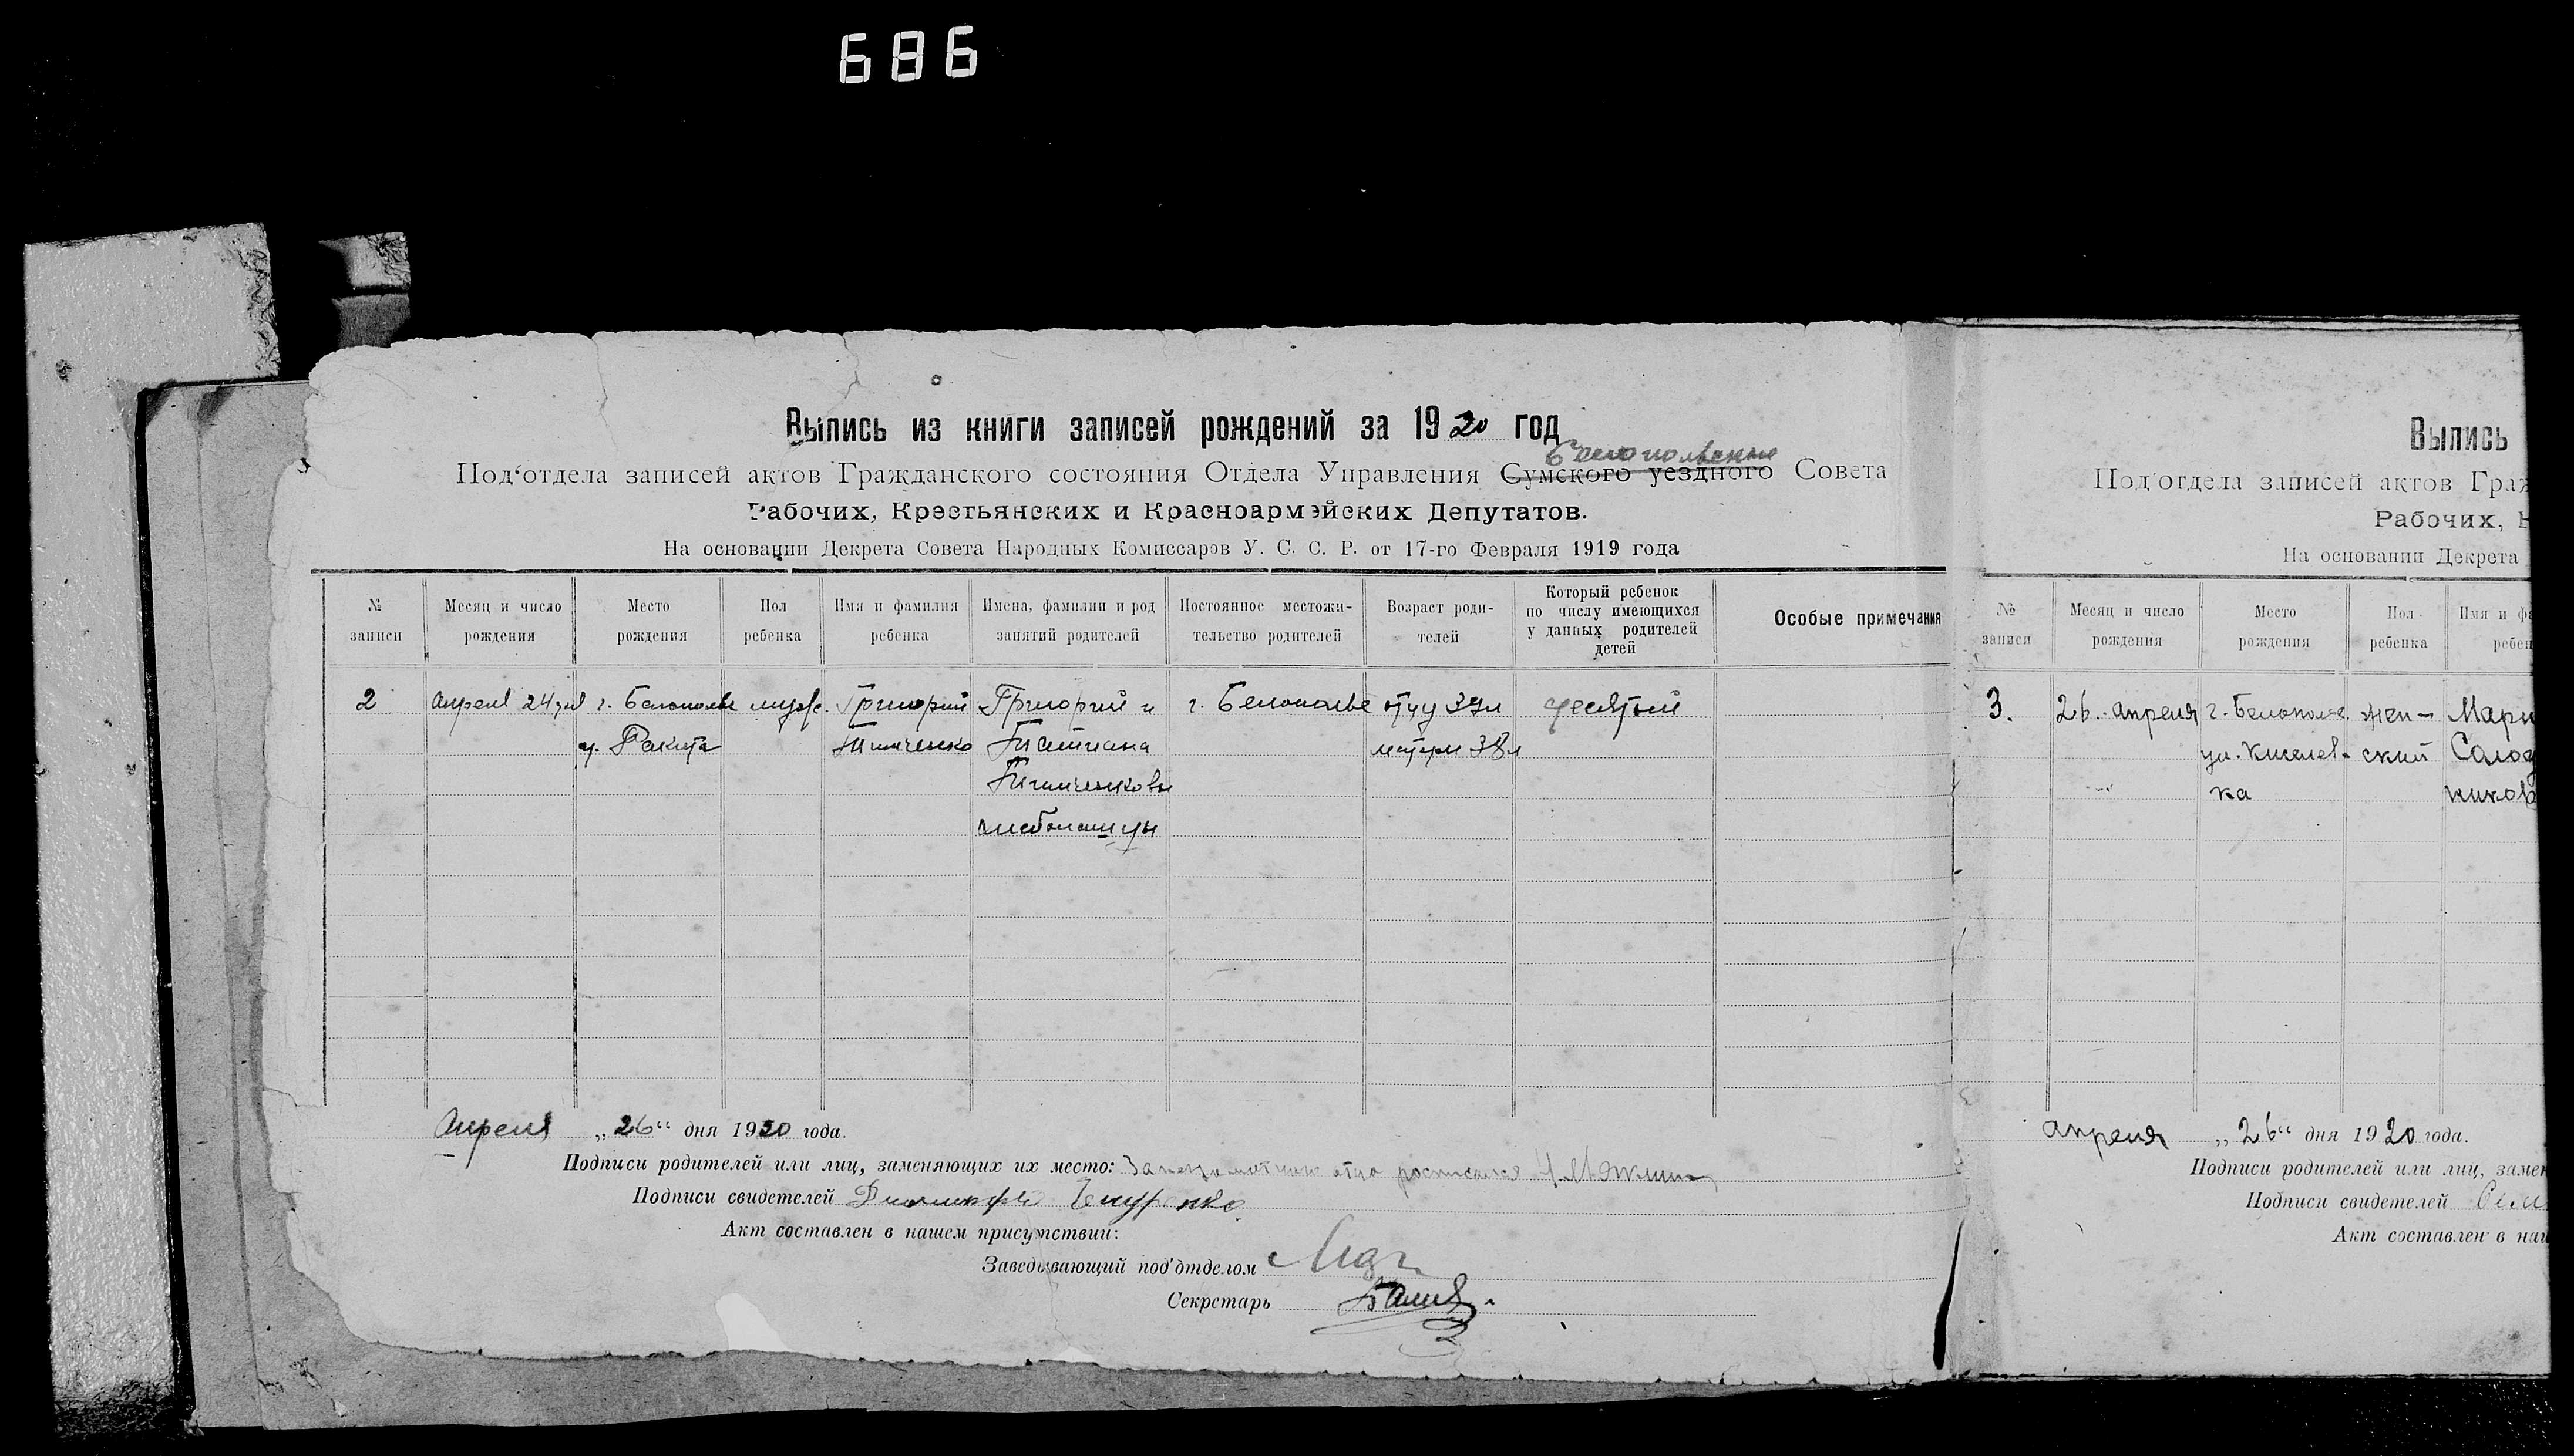 686
Выпись из книги записей рождений за 1920 год
Белопольские
Под'отдела записей актов Гражданского состояния Отдела Управления Сумского уездного Совета
Рабочих, Крестьянских и Красноармейских Депутатов.
На основании Декрета Совета Народных Комиссаров У. С. С. Р. от 17-го Февраля 1919 года
№ записи
Месяц и число рождения
Место рождения
Пол ребенка
Имя и фамилия ребенка
Имена, фамилии и род занятий родителей
Постоянное местожительство родителей
Возраст родителей
Который ребенок по числу имеющихся у данных родителей детей
Особые примечания
2 Апреля 24 дня г. Белополье муж. Григорий Григорий и г. Белополье отцу 39л десятый
у. Ракита Тимченко Татиана матери 38л
Тимченковы
хлебопашцы
Апреля „26“ дня 1920 года.
Подписи родителей или лиц, заменяющих их место: За неграмотного отца росписался
Подписи свидетелей
Акт составлен в нашем присутствии:
Заведывающий под'отделом
Секретарь
Выпись
Под'отдела записей актов Граж
Рабочих, К
На основании Декрета
№ записи
Месяц и число рождения
Место рождения
Пол ребенка
Имя и фа
ребен
3. 26. апреля г. Белополье жен- Мари
ул. Киселев- ский Солод
ка ников
апреля „26“ дня 1920 года.
Подписи родителей или лиц, замен
Подписи свидетелей
Акт составлен в наш